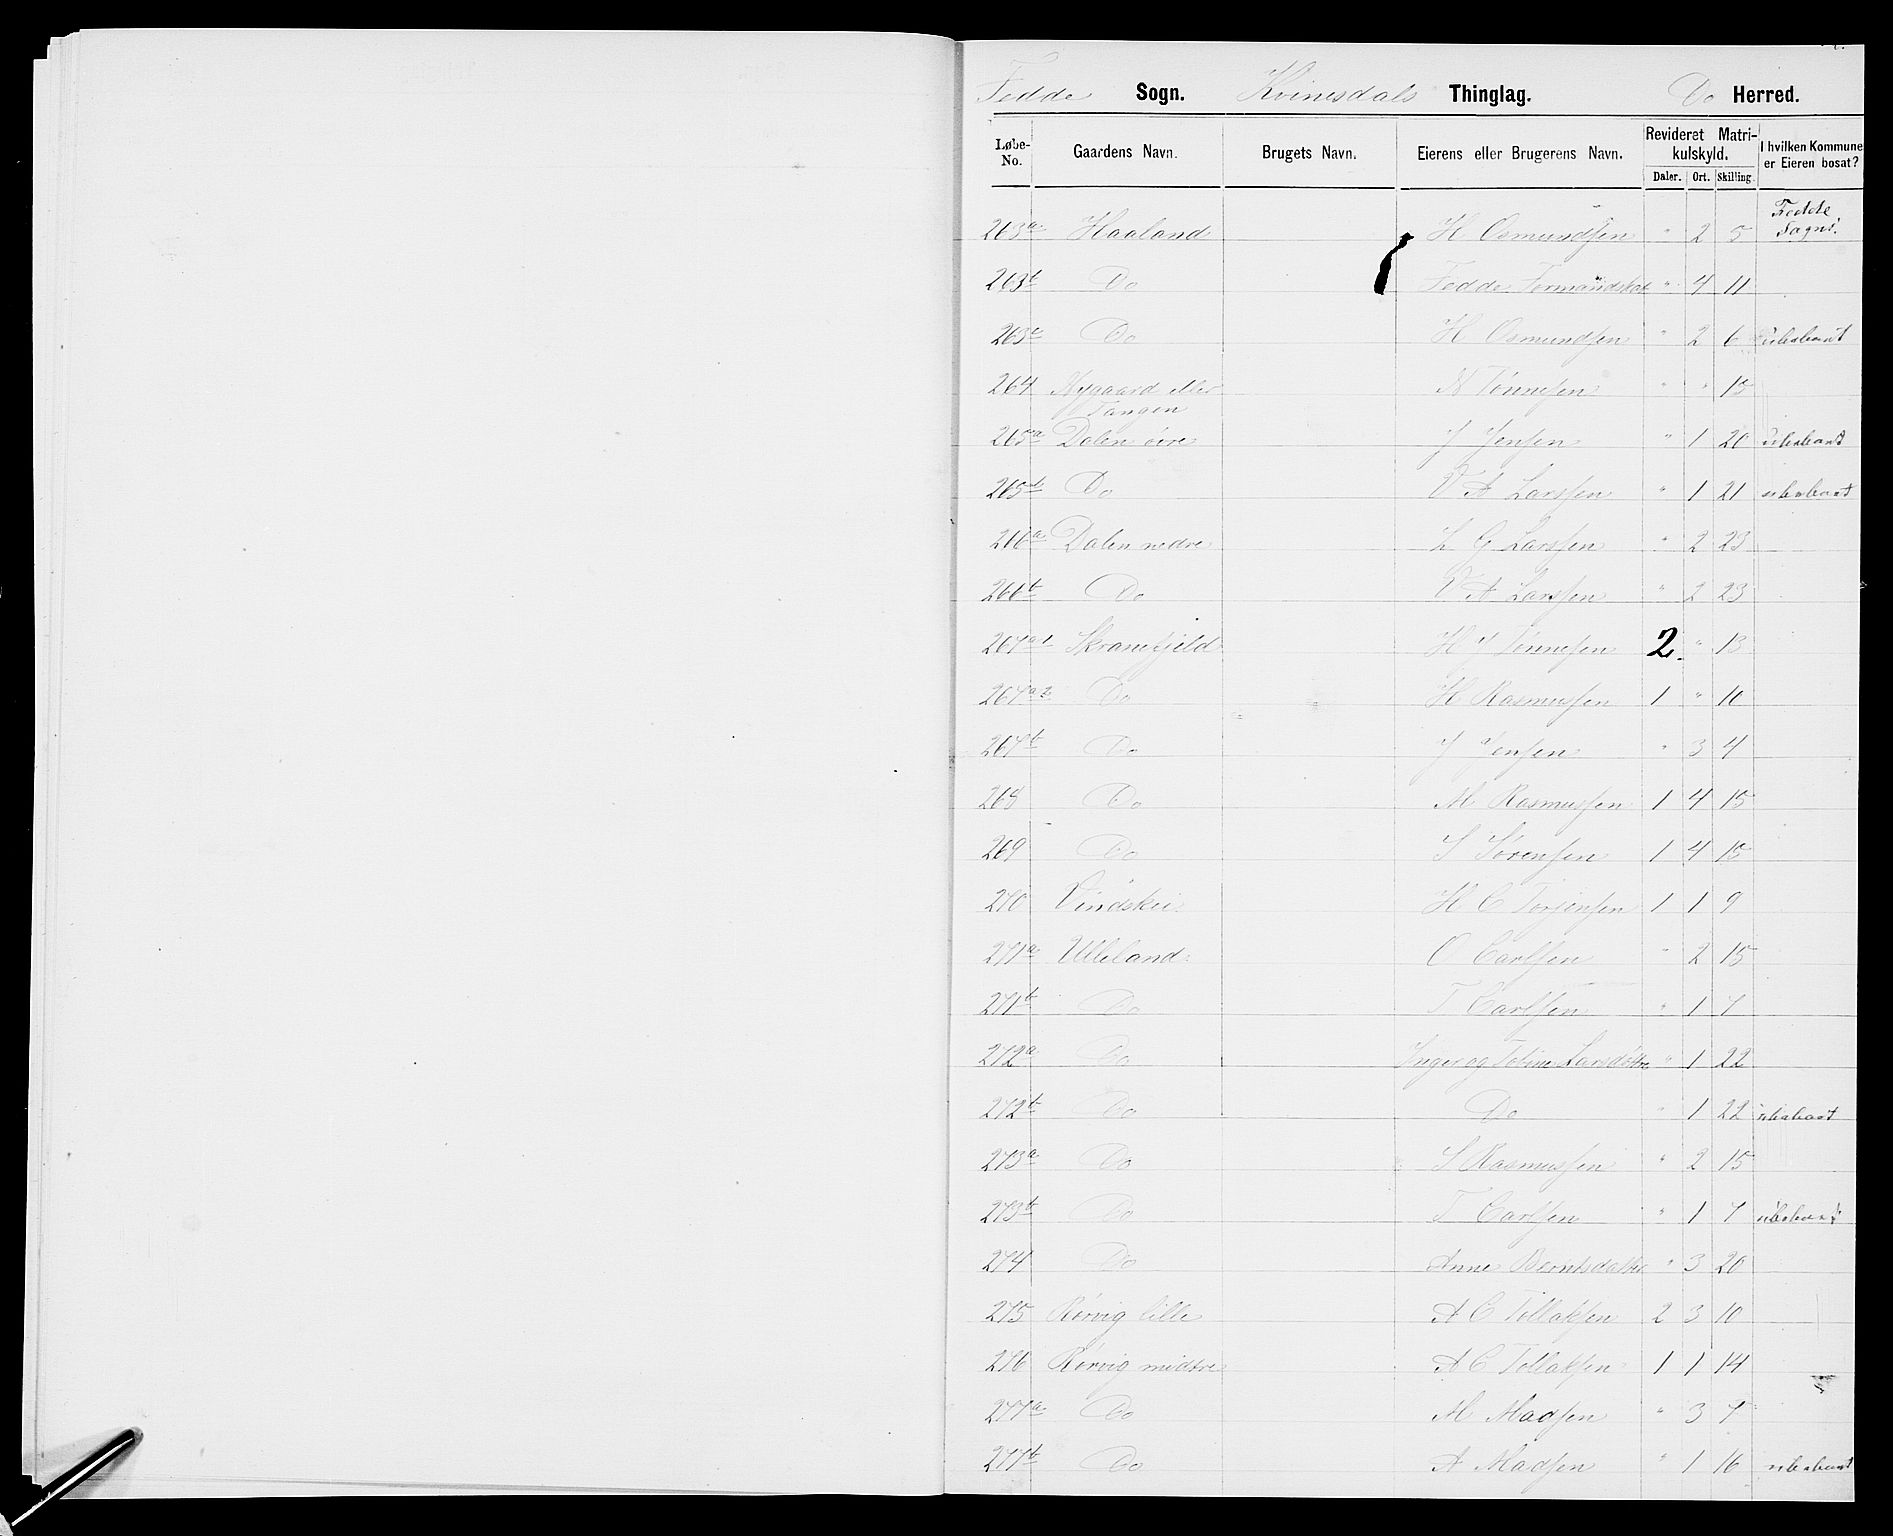 Fedde Sogn. Kvinesdals Thinglag. Do Herred.
Løbe-No. Gaardens Navn. Brugets Navn. Eierens eller Brugerens Navn. Revideret Matrikulskyld. Daler. Ort. Skilling. I hvilken Kommune er Eieren bosat?
263a Haaland H Osmundsen " 2 5 Fedde Sogn.
263b Do Fedde Formandskab " 4 11
263c Do H Osmundsen " 2 6 ubeboet
264 Nygaard eller Tangen N Tønnesen " " 15
265a Dalen øvre J Jensen " 1 20 ubeboet
265b Do V A Larssen " 1 21 ubeboet
266a Dalen nedre L G Larssen " 2 23
266b Do V A Larssen " 2 23
267a1 Skranefjeld H J Tønnesen 2 " 13
267a2 Do H Rasmussen 1 " 10
267b Do J Jensen " 3 4
268 Do M Rasmussen 1 4 15
269 Do S Sørensen 1 4 15
270 Vindskei H C Torjensen 1 1 9
271a Ulleland O Carlsen " 2 15
271b Do T Carlsen " 1 7
272a Do Inger og Tobine Larsdøttre " 1 22
272b Do Do " 1 22 ubeboet
273a Do S Rasmussen " 2 15
273b Do T Carlsen " 1 7 ubeboet
274 Do Anne Berntsdatter " 3 20
275 Rørvig lille A C Tollaksen 2 3 10
276 Rørvig midtre A C Tollaksen 1 1 14
277a Do M Madsen " 3 7
277b Do A Madsen " 1 16 ubeboet